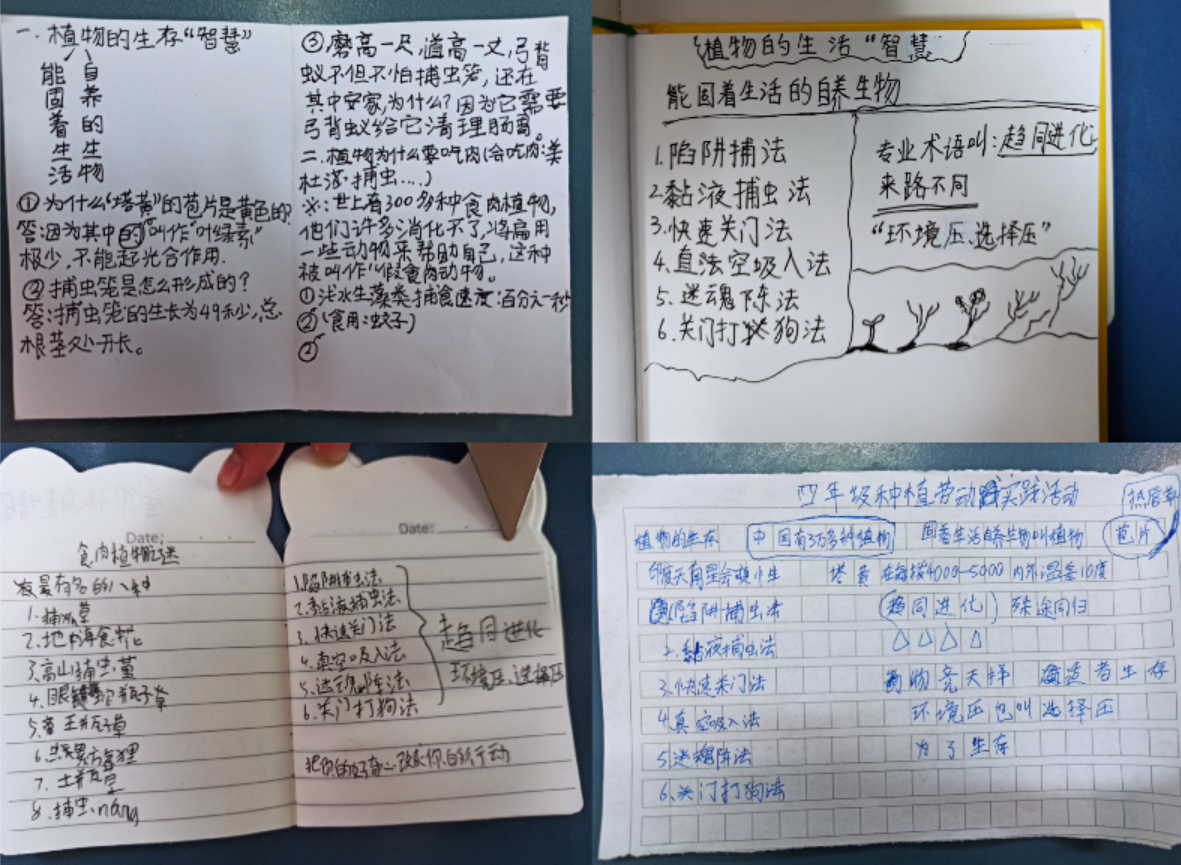 一.植物的生存“智慧”
能固着生活
自养的生物
①为什么“塔黄”的苞片是黄色的?
答:因为其中的叫作“叶绿素”
极少,不能起光合作用.
②捕虫笼是怎么形成的?
答:捕虫笼的生长为49秒少,总
根茎处开长。
③磨高一尺,道高一丈,弓背
蚁不但不怕捕虫笼,还在
其中安家,为什么?因为它需要
弓背蚁给它清理肠胃。
二.植物为什么要吃肉(会吃肉:茅
杜落·捕虫...)
※:世上有300多种食肉植物,
他们许多消化不了,将雇用
一些动物来帮助自己,这种
被叫作“假食肉动物。
①浅水生藻类捕食速度:百分之一秒
②(食用:蚊子)
②
植物的生活“智慧”
能固着生活的自养生物
1.陷阱捕法
2.黏液捕虫法
3.快速关门法
4.直法空吸入法
5.迷魂阵法
6.关门打狗法
专业术语叫:趋同进化
来路不同
“环境压、选择压”
Date:
食肉植物之谜
最有名的八种
1.捕蝇草
2.地中海食
3.高山捕虫堇
4.眼镜蛇瓶子草
5.
6.
7.土瓶草
8.捕虫náng
Date:
1.陷阱捕法
2.黏液捕虫法
3.快速关门法
4.真空吸入法
5.迷魂阵法
6.关门打狗法
趋同进化
环境压、选择压
把你的好奇心改成你的行动
四年级种植劳动实践活动
热唇草
植物的生存
中国有3万多种植物
固着生活自养生物叫植物
苞片
印度天南星会变小生
塔黄 在海拔4000-5000 内外温差10度
陷阱捕虫法
(趋同进化) 殊途同归
2.黏液捕虫法
3.快速关门法
物竞天择 适者生存
4.真空吸入法
环境压也叫选择压
5.迷魂阵法
为了生存
6.关门打狗法